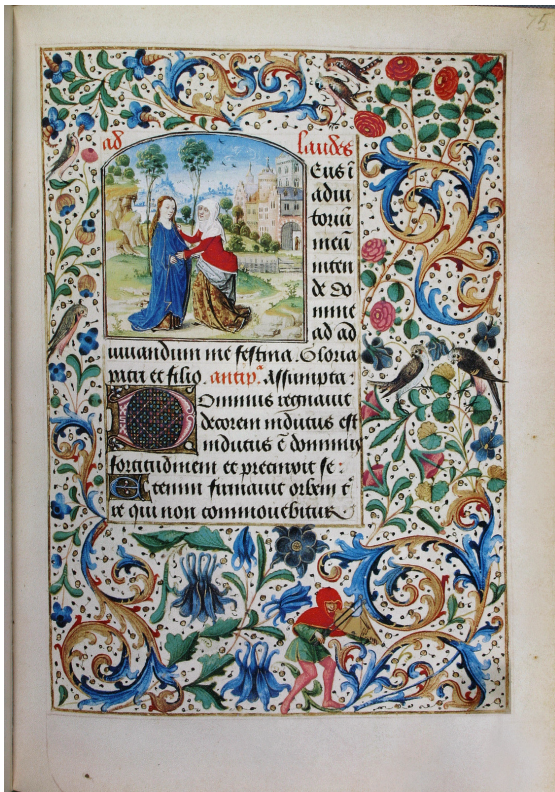 75
ad laudes
Eus ĩ
adiu
toriũ
meũ
inten
de Do
mine
ad ad
iuuandum me festina. Gloria
patri et filio. antip.ª Assumpta.
Ominus regnauit
decorem indutus est
indutus ẽ dominus
fortitudinem et precinxit se:
Etenim firmauit orbem t̃
re qui non commouebitur